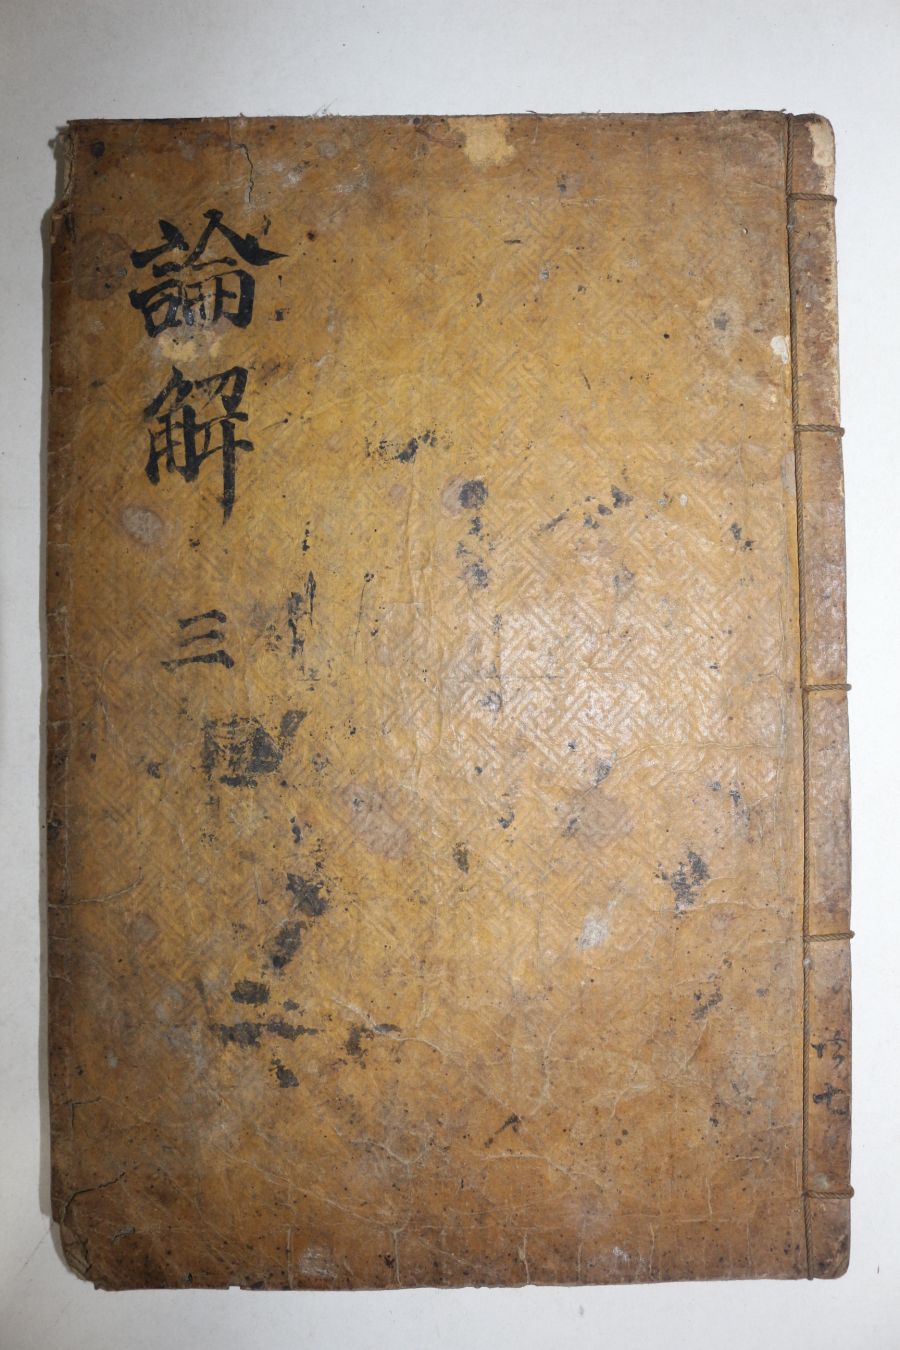 論解
三
共七